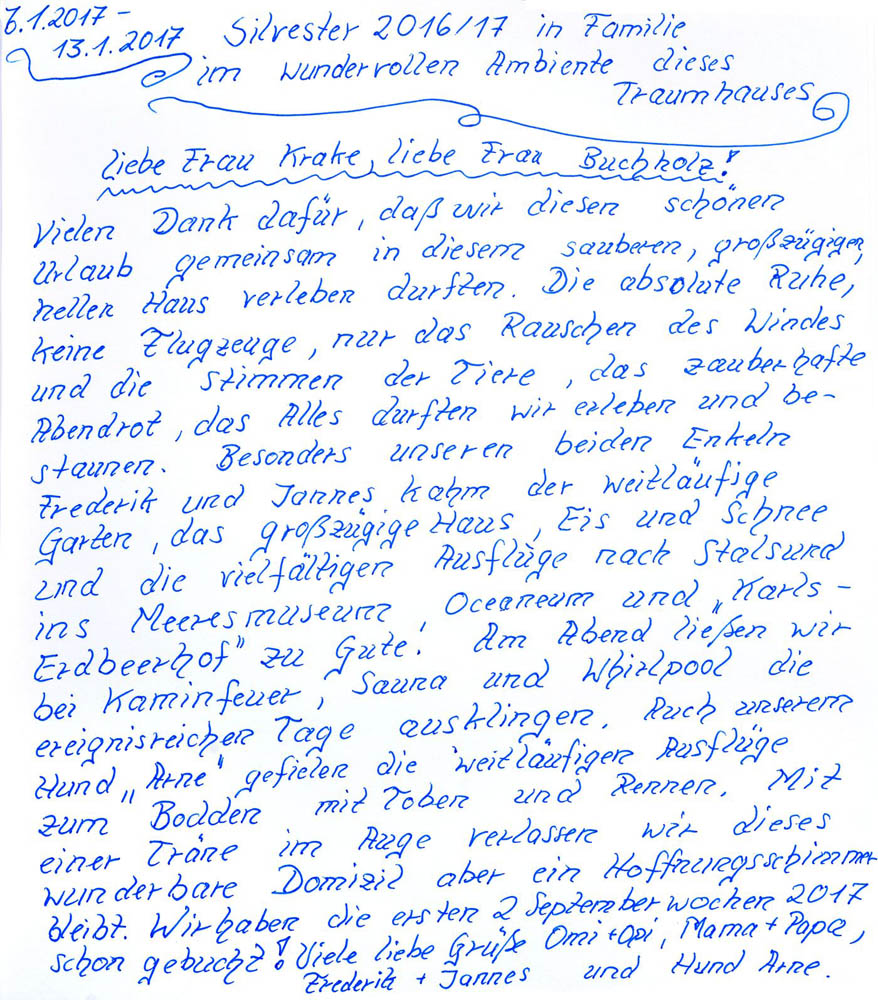 6.1.2017 -
13.1.2017
Silvester 2016/17 in Familie
im wundervollen Ambiente dieses
Traumhauses
Liebe Frau Krake, liebe Frau Buchholz!
Vielen Dank dafür, daß wir diesen schönen
Urlaub gemeinsam in diesem sauberen, großzügigen,
hellen Haus verleben durften. Die absolute Ruhe,
keine Flugzeuge, nur das Rauschen des Windes
und die Stimmen der Tiere, das zauberhafte
Abendrot, das Alles durften wir erleben und be-
staunen. Besonders unseren beiden Enkeln
Frederik und Jannes kahm der weitläufige
Garten, das großzügige Haus, Eis und Schnee
und die vielfältigen Ausflüge nach Stalsund
ins Meeresmuseum, Oceaneum und „Karls-
Erdbeerhof" zu Gute! Am Abend ließen wir
bei Kaminfeuer, Sauna und Whirlpool die
ereignisreichen Tage ausklingen. Auch unserem
Hund „Arne" gefielen die weitläufigen Ausflüge
zum Bodden mit Toben und Rennen. Mit
einer Träne im Auge verlassen wir dieses
wunderbare Domizil aber ein Hoffnungsschimmer
bleibt. Wir haben die ersten 2 Septemberwochen 2017
schon gebucht! Viele liebe Grüße Omi + Opi, Mama + Papa,
Frederik + Jannes und Hund Arne.